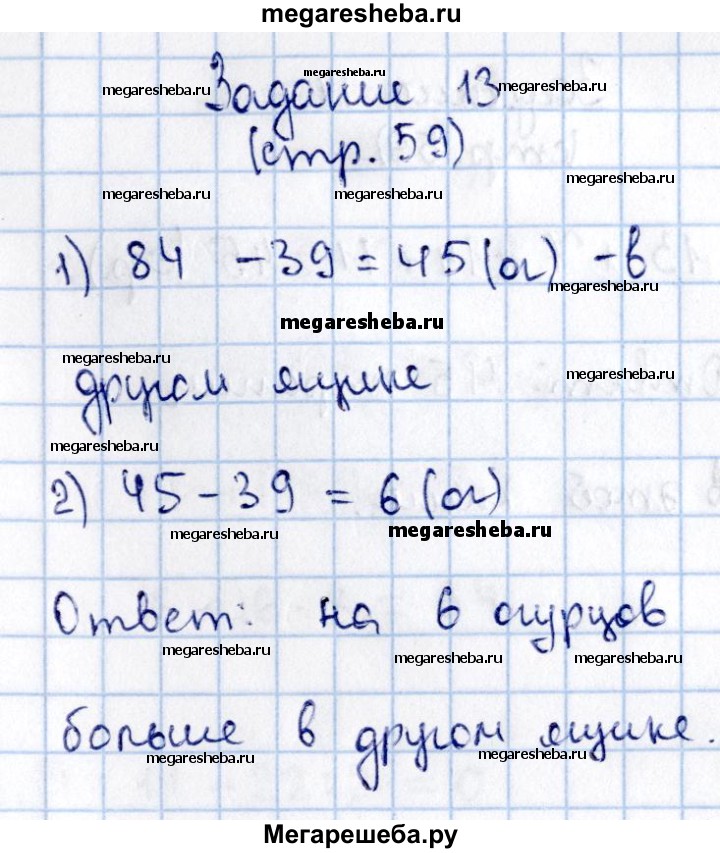 megaresheba.ru
megaresheba.ru
Задание 13
megaresheba.ru megaresheba.ru
(стр. 59)
megaresheba.ru
megaresheba.ru megaresheba.ru
1) 84 - 39 = 45 (ог) - в
megaresheba.ru
megaresheba.ru
megaresheba.ru
другом ящике
megaresheba.ru
megaresheba.ru
2) 45 - 39 = 6 (ог)
megaresheba.ru megaresheba.ru
Ответ: на 6 огурцов
megaresheba.ru megaresheba.ru megaresheba.ru
больше в другом ящике.
megaresheba.ru megaresheba.ru
Мегарешеба.ру